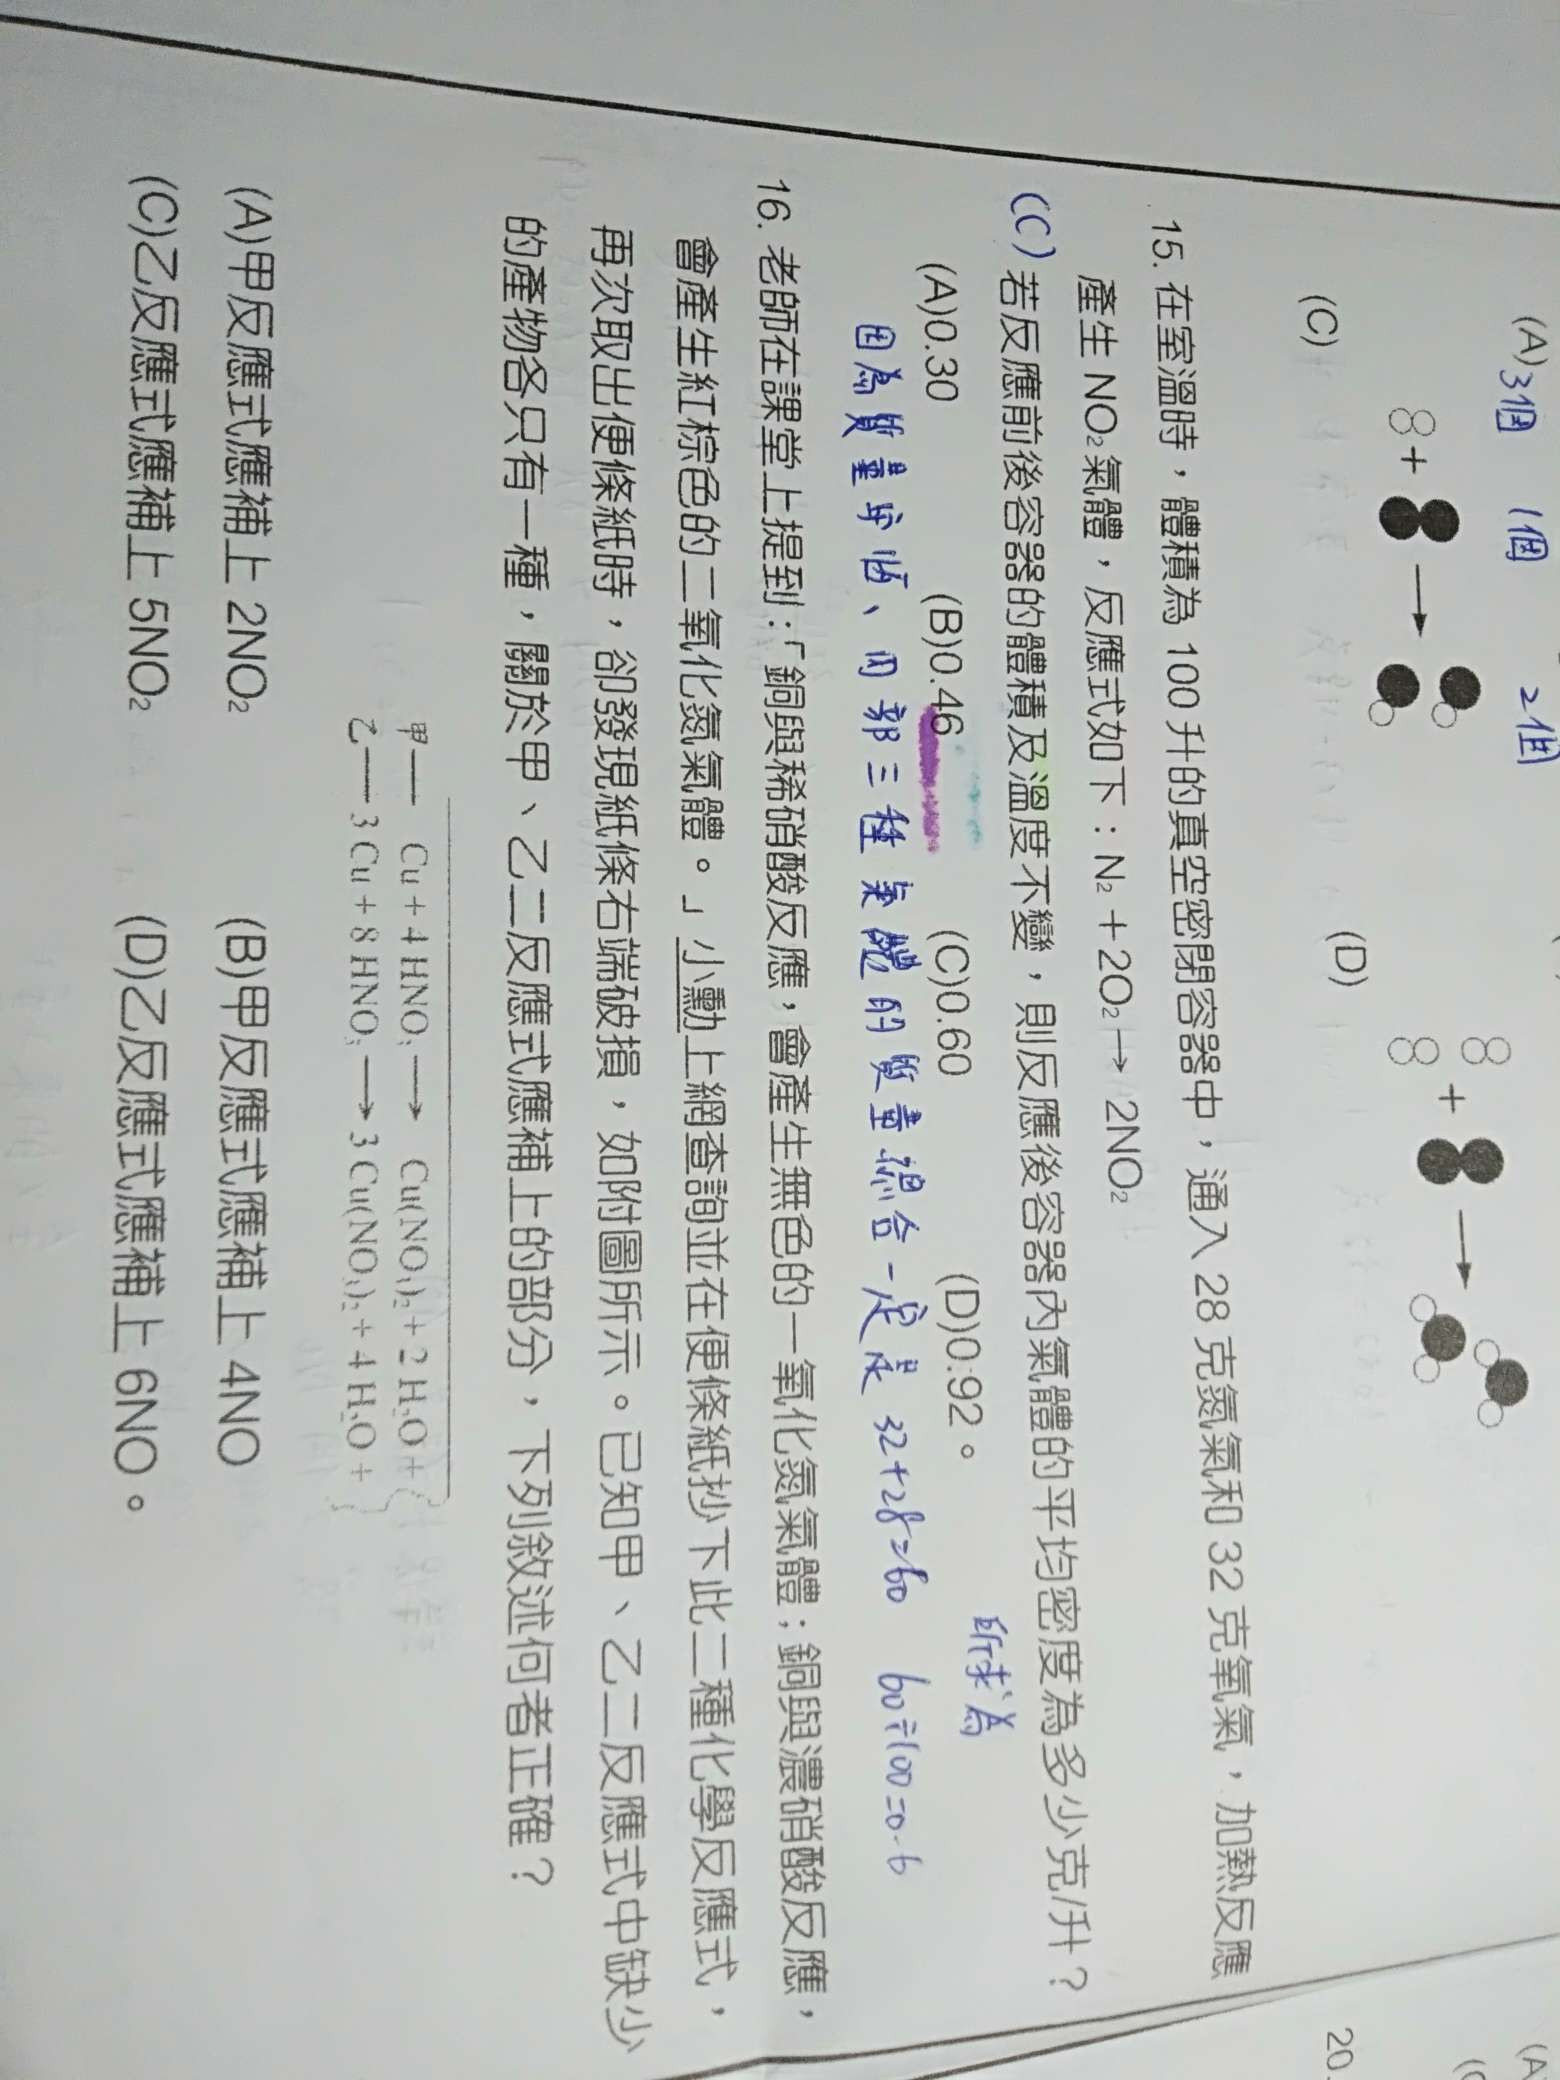 (A) 3個 1個 2個
(C)
(D)
15. 在室溫時，體積為 100 升的真空密閉容器中，通入 28 克氮氣和 32 克氧氣，加熱反應
產生 NO₂ 氣體，反應式如下：N₂ + 2O₂ → 2NO₂
(C) 若反應前後容器的體積及溫度不變，則反應後容器內氣體的平均密度為多少克/升？
所求為
(A)0.30 (B)0.46 (C)0.60 (D)0.92。
因為質量守恆、內部三種氣體的質量總合一定是 32+28=60 60÷100=0.6
16. 老師在課堂上提到：「銅與稀硝酸反應，會產生無色的一氧化氮氣體；銅與濃硝酸反應，
會產生紅棕色的二氧化氮氣體。」小勳上網查詢並在便條紙抄下此二種化學反應式，
再次取出便條紙時，卻發現紙條右端破損，如附圖所示。已知甲、乙二反應式中缺少
的產物各只有一種，關於甲、乙二反應式應補上的部分，下列敘述何者正確？
甲— Cu + 4 HNO₃ → Cu(NO₃)₂ + 2 H₂O +
乙— 3 Cu + 8 HNO₃ → 3 Cu(NO₃)₂ + 4 H₂O +
(A)甲反應式應補上 2NO₂ (B)甲反應式應補上 4NO
(C)乙反應式應補上 5NO₂ (D)乙反應式應補上 6NO。
20.